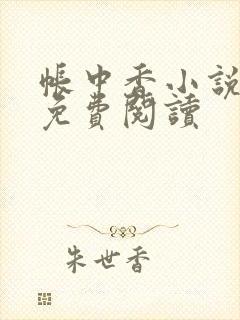 帳中香小說
免費閱讀
朱世香